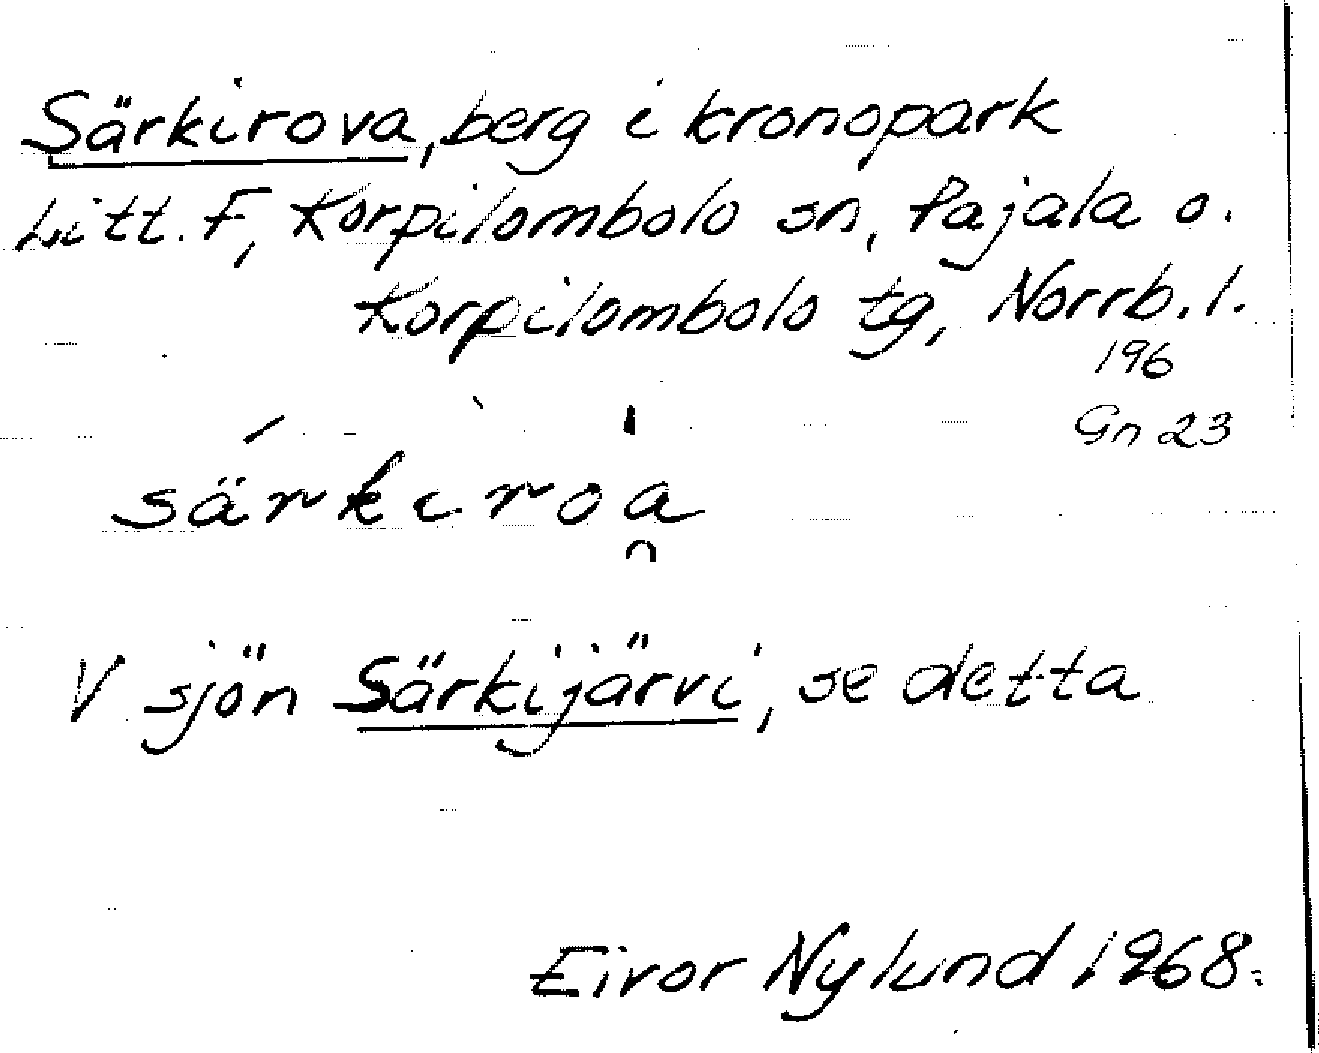 Särkirova, berg i kronopark
Litt. F, Korpilombolo sn, Pajala o.
Korpilombolo tg, Norrb. l.
196
Gn 23
särkiroa̯
V sjön Särkijärvi, se detta
Eivor Nylund 1968.